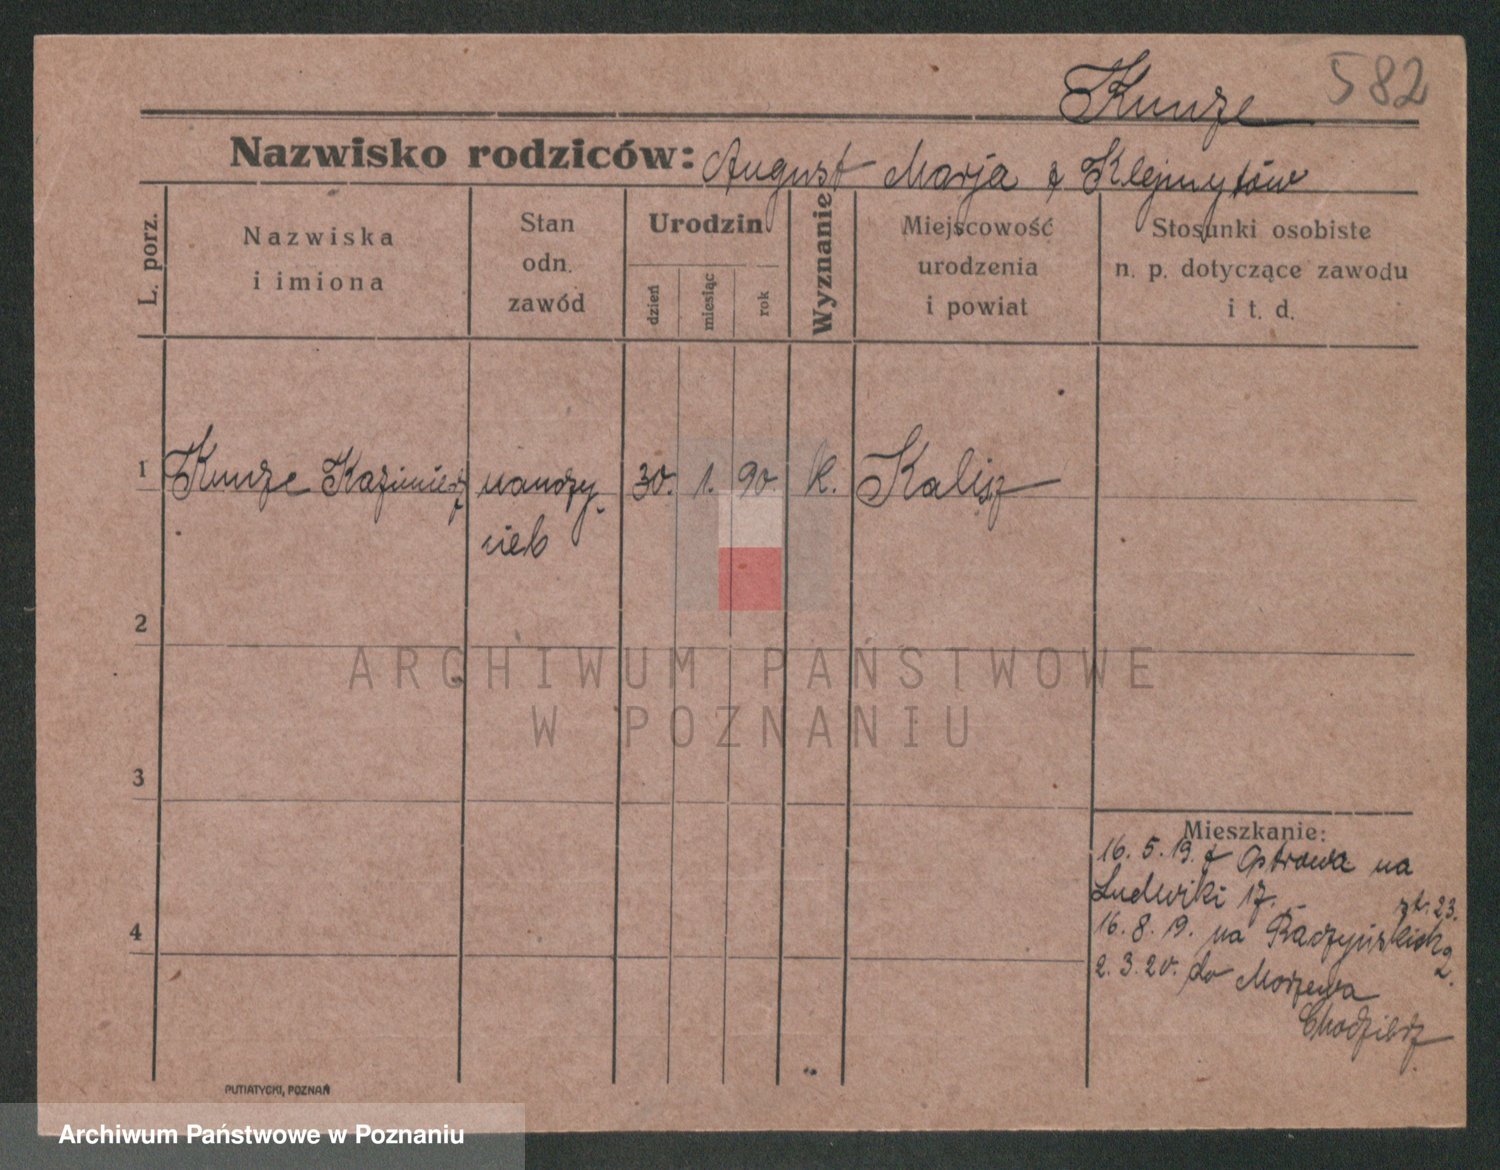 Kunze 582
Nazwisko rodziców: August Marja z Klejnytów
L. porz.
Nazwiska
i imiona
Stan
odn.
zawód
Urodzin
dzień
miesiąc
rok
Wyznanie
Miejscowość
urodzenia
i powiat
Stosunki osobiste
n. p. dotyczące zawodu
i t. d.
1 Kunze Kazimierz nauczy- 30. 1. 90 k. Kalisz
ciel
2
ARCHIWUM PAŃSTWOWE
W POZNANIU
3
Mieszkanie:
16. 5. 19. z Ostrowa na
Ludwiki 17.
16. 8. 19. na Raczyńskich 2.
4
2. 3. 20. do Morzewa
Chodzież
PUTIATYCKI, POZNAŃ
Archiwum Państwowe w Poznaniu